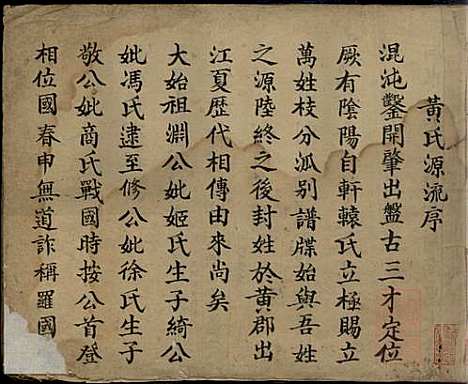 黃氏源流序
混沌鑿開肇出盤古三才定位
厥有陰陽自軒轅氏立極賜立
萬姓枝分泒别譜牒始與吾姓
之源陸終之後封姓於黃郡出
江夏歷代相傳由來尚矣
大始祖淵公妣姬氏生子綺公
妣馮氏逮至修公妣徐氏生子
敬公妣商氏戰國時按公首登
相位國春申無道詐稱羅國